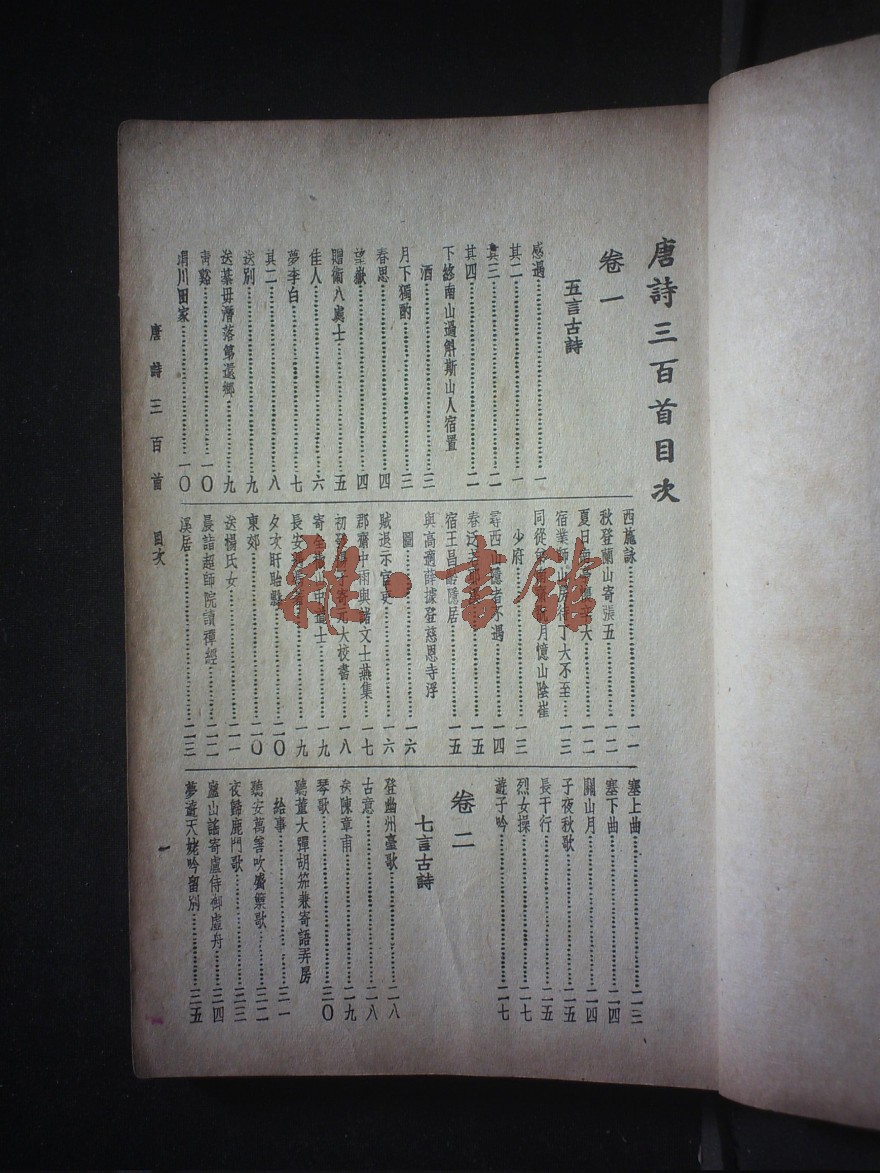 唐詩三百首目次
卷一
五言古詩
感遇……一
其二……一
其三……二
其四……二
下終南山過斛斯山人宿置
酒……三
月下獨酌……三
春思……四
望嶽……四
贈衞八處士……五
佳人……六
夢李白……七
其二……八
送別……九
送綦毋潛落第還鄉……九
靑谿……一〇
渭川田家……一〇
西施詠……一一
秋登蘭山寄張五……一二
夏日南亭懷辛大……一二
宿業師山房待丁大不至……一三
同從弟南齋翫月憶山陰崔
少府……一三
尋西山隱者不遇……一四
春泛若耶溪……一五
宿王昌齡隱居……一五
與高適薛據登慈恩寺浮
圖……一六
賊退示官吏……一六
郡齋中雨與諸文士燕集……一七
初發揚子寄元大校書……一八
寄全椒山中道士……一九
長安遇馮著……一九
夕次盱眙縣……二〇
東郊……二〇
送楊氏女……二一
晨詣超師院讀禪經……二二
溪居……二三
塞上曲……二三
塞下曲……二四
關山月……二四
子夜秋歌……二五
長干行……二五
烈女操……二七
遊子吟……二七
卷二
七言古詩
登幽州臺歌……二八
古意……二八
送陳章甫……二九
琴歌……三〇
聽董大彈胡笳兼寄語弄房
給事……三一
聽安萬善吹觱篥歌……三二
夜歸鹿門歌……三三
廬山謠寄盧侍御虛舟……三四
夢遊天姥吟留別……三五
唐詩三百首 目次
一
雜·書館